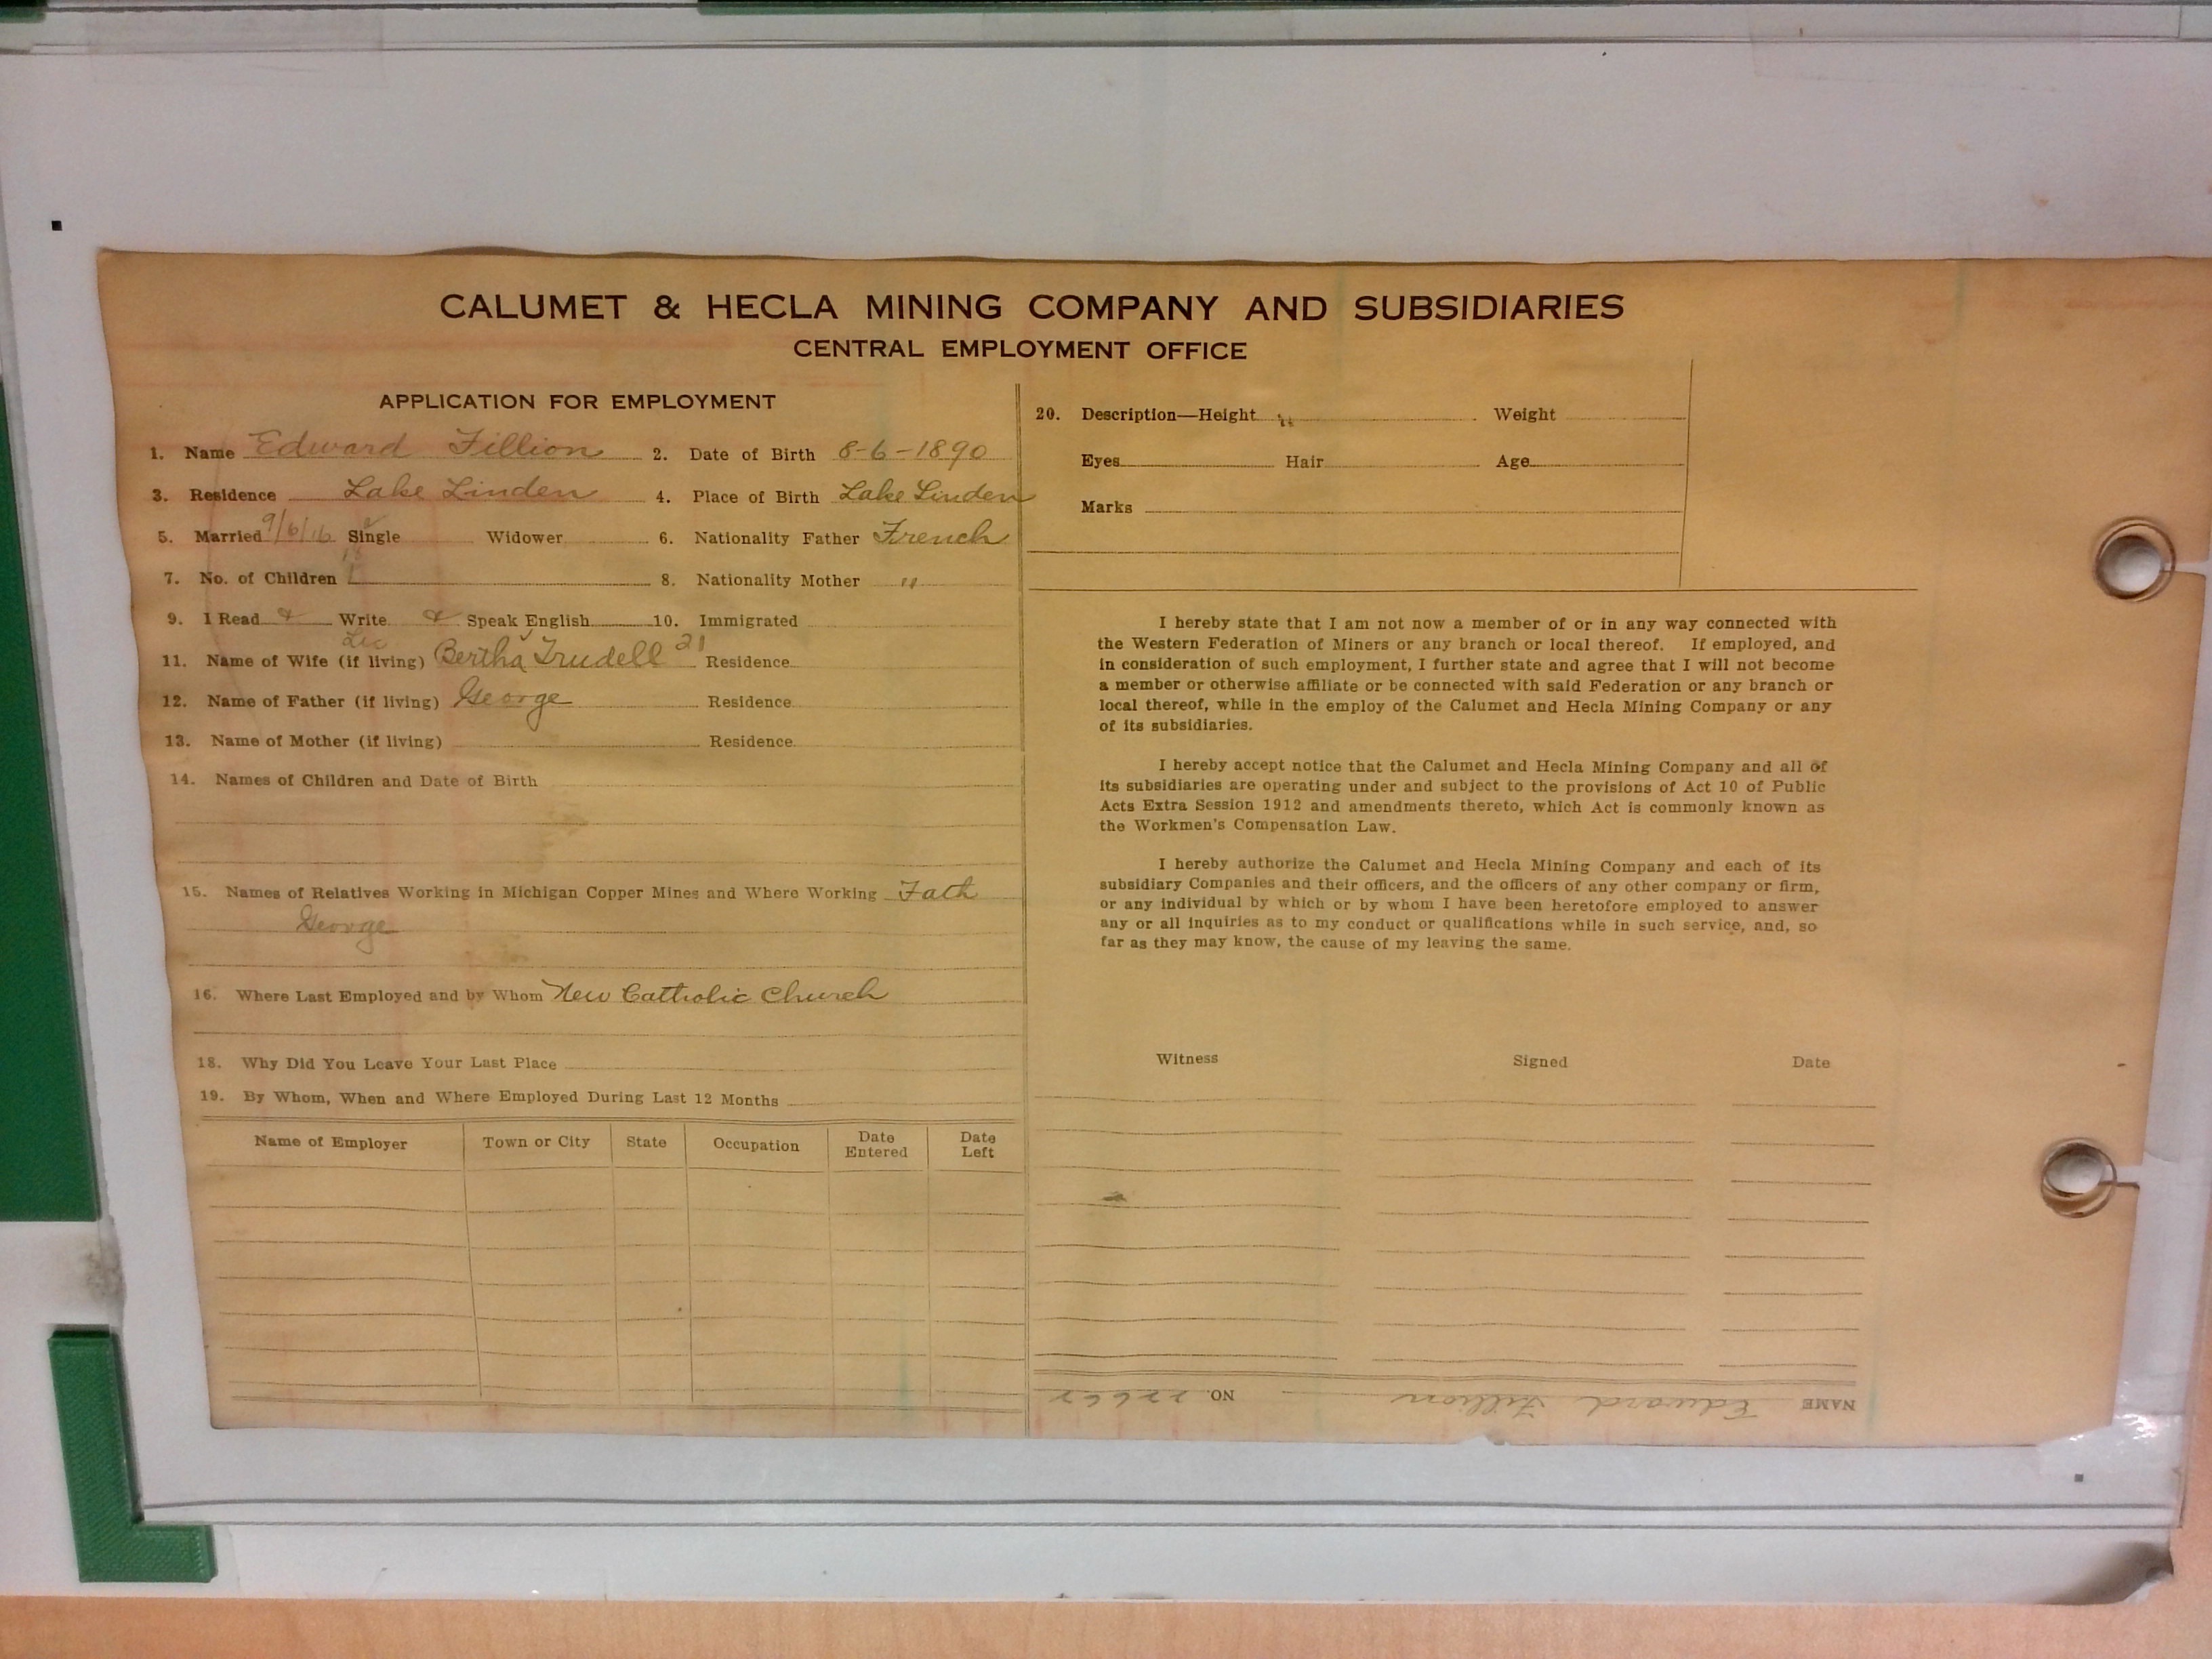 CALUMET & HECLA MINING COMPANY AND SUBSIDIARIES
CENTRAL EMPLOYMENT OFFICE
APPLICATION FOR EMPLOYMENT
1. Name Edward Fillion 2. Date of Birth 8-6-1890
3. Residence Lake Linden 4. Place of Birth Lake Linden
5. Married 9/6/16 Single Widower 6. Nationality Father French
7. No. of Children 8. Nationality Mother "
9. I Read & Write & Speak English 10. Immigrated
11. Name of Wife (if living) Bertha Trudell 21 Residence
12. Name of Father (if living) George Residence
13. Name of Mother (if living) Residence
14. Names of Children and Date of Birth
15. Names of Relatives Working in Michigan Copper Mines and Where Working Fath
George
16. Where Last Employed and by Whom New Catholic Church
18. Why Did You Leave Your Last Place
19. By Whom, When and Where Employed During Last 12 Months
Name of Employer Town or City State Occupation Date Entered Date Left
20. Description—Height Weight
Eyes Hair Age
Marks
I hereby state that I am not now a member of or in any way connected with
the Western Federation of Miners or any branch or local thereof. If employed, and
in consideration of such employment, I further state and agree that I will not become
a member or otherwise affiliate or be connected with said Federation or any branch or
local thereof, while in the employ of the Calumet and Hecla Mining Company or any
of its subsidiaries.
I hereby accept notice that the Calumet and Hecla Mining Company and all of
its subsidiaries are operating under and subject to the provisions of Act 10 of Public
Acts Extra Session 1912 and amendments thereto, which Act is commonly known as
the Workmen's Compensation Law.
I hereby authorize the Calumet and Hecla Mining Company and each of its
subsidiary Companies and their officers, and the officers of any other company or firm,
or any individual by which or by whom I have been heretofore employed to answer
any or all inquiries as to my conduct or qualifications while in such service, and, so
far as they may know, the cause of my leaving the same.
Witness Signed Date
NAME Edward Fillion NO. 22662